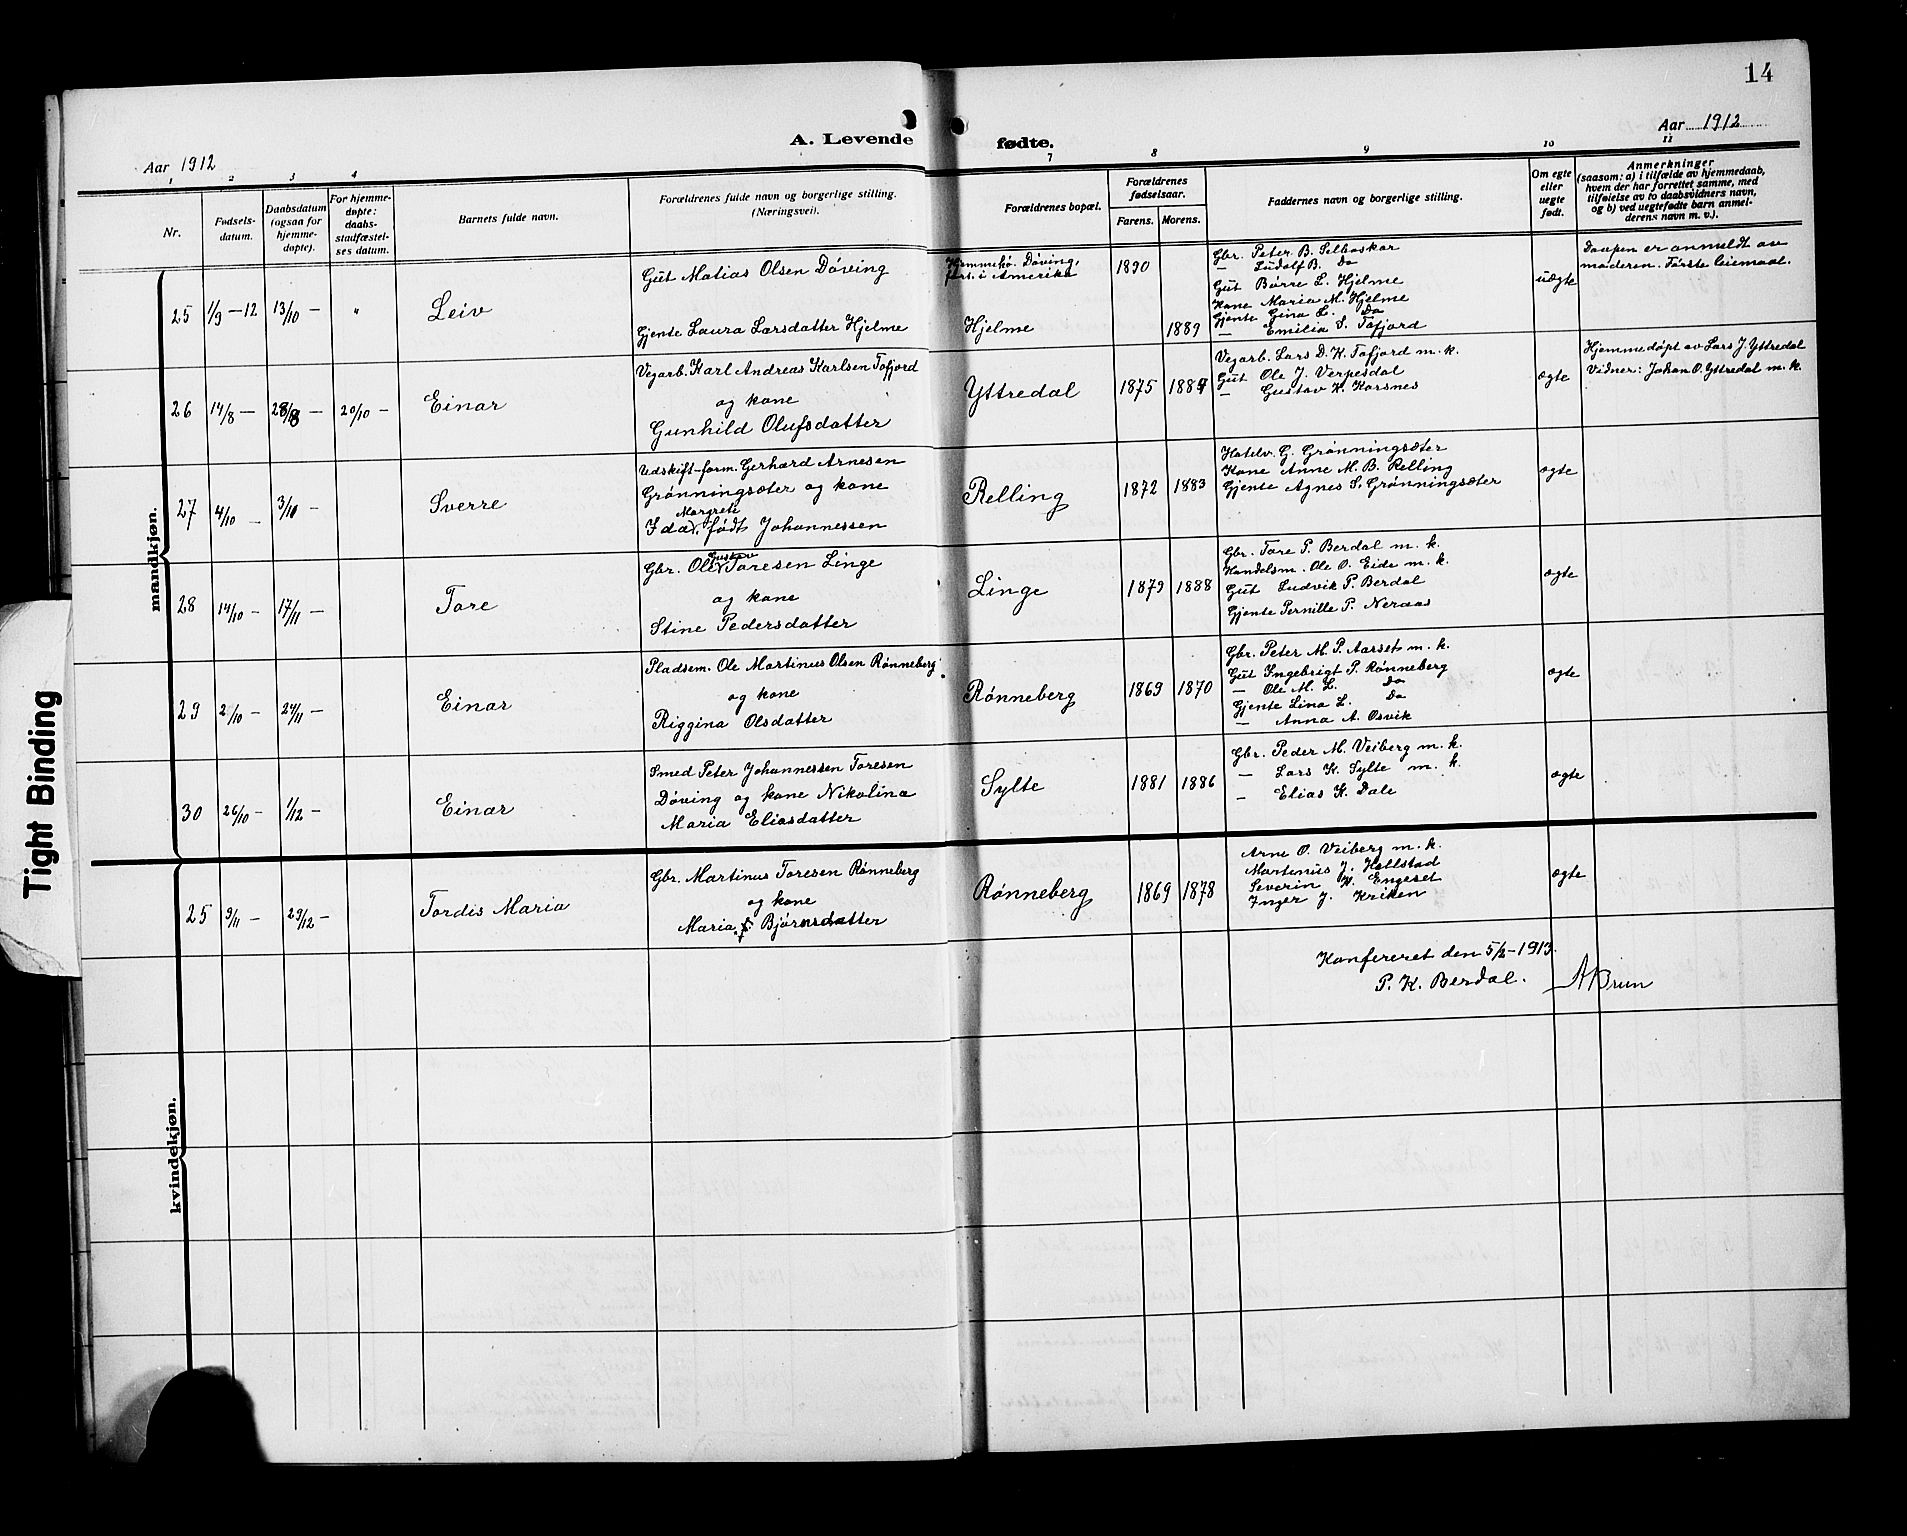 14
Aar 1912
A. Levende fødte.
Aar 1912
1 2 3 4 7 8 9 10 11
Nr.
Fødsels-
datum.
Daabsdatum
(ogsaa for
hjemme-
døpte).
For hjemme-
døpte:
daabs-
stadfæstel-
ses datum.
Barnets fulde navn.
Forældrenes fulde navn og borgerlige stilling.
(Næringsvei).
Forældrenes bopæl.
Forældrenes
fødselsaar.
Farens. Morens.
Faddernes navn og borgerlige stilling.
Om egte
eller
uegte
født.
Anmerkninger
(saasom: a) i tilfælde av hjemmedaab,
hvem der har forrettet samme, med
tilføielse av to daabsvidners navn,
og b) ved uegtefødte barn anmel-
derens navn m. v.).
mandkjøn.
25 1/9 – 12 13/10 – " Leiv
Gut Matias Olsen Døving
Gjente Laura Larsdatter Hjelme
Hjemmehø. Døving,
fort. i Amerika
Hjelme
1890
1889
Gbr. Peter B. Selboskar
– Ludolf B. Do
Gut Børre L. Hjelme
Kone Maria M. Hjelme
Gjente Gina L. Do
– Emilia S. Tafjord
uegte
Daapen er anmeldt av
moderen. Første leiemaal.
26 14/8 – 28/8 – 20/10 – Einar
Vegarb. Karl Andreas Karlsen Tafjord
og kone
Gunhild Olufsdatter
Yttredal
1875 1884
Vegarb. Lars D. K. Tafjord m. k.
Gut Ole J. Verpesdal
– Gustav K. Korsnes
egte
Hjemmedøpt av Lars J. Yttredal
Vidner: Johan O. Yttredal m. k.
27 4/10 – 3/10 – Sverre
Udskift-form. Gerhard Arnesen
Grønningsæter og kone
Margrete
Ida, født Johannessen
Relling
1872 1883
Hotelv. G. Grønningsæter
Kone Anne M. B. Relling
Gjente Agnes S. Grønningsæter
egte
28 14/10 – 17/11 – Tore
Gustav
Gbr. Ole Toresen Linge
og kone
Stine Pedersdatter
Linge
1879 1888
Gbr. Tore P. Berdal m. k.
Handelsm. Ole O. Eide m. k.
Gut Ludvik P. Berdal
Gjente Pernille P. Neraas
egte
29 2/10 – 24/11 – Einar
Pladsem. Ole Martinus Olsen Rønneberg
og kone
Riggina Olsdatter
Rønneberg
1869 1870
Gbr. Peter M. P. Aarset m. k.
Gut Ingebrigt P. Rønneberg
– Ole M. L. Do
Gjente Lina L. Do
– Anna A. Osvik
egte
30 26/10 – 1/12 – Einar
Smed Peter Johannessen Toresen
Døving og kone Nikolina
Maria Eliasdatter
Sylte
1881 1886
Gbr. Peder M. Veiberg m. k.
– Lars K. Sylte m. k
– Elias K. Dale
egte
kvindekjøn.
25 9/11 – 29/12 – Tordis Maria
Gbr. Martinus Toresen Rønneberg
og kone
Maria Bjørnsdatter
Rønneberg
1869 1878
Arne O. Veiberg m. k.
Martinus J. Hallstad
Severin K. Engeset
Inger J. Kriken
egte
Konfereret den 5/2 – 1913.
P. K. Berdal. ABrun
Tight Binding